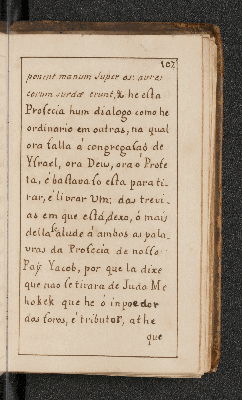 107
ponent manum super os: aures
eorum surdæ erunt, & he esta
Profecia hum dialogo como he
ordinario em outras, na qual
ora falla á congregasaõ de
Ysrael, ora Deus, ora o Profe
ta, é bastava so esta para ti-
rar, é livrar Vm: das trevi-
as em que está, dexo, ó mais
della salude é ambos as pala-
vras da Profecia de nosso
Pay Yacob, por que la dixe
que naõ se tirara de Juda Me
hokek que he ó inpoedor
das foros, é tributor, athe
que